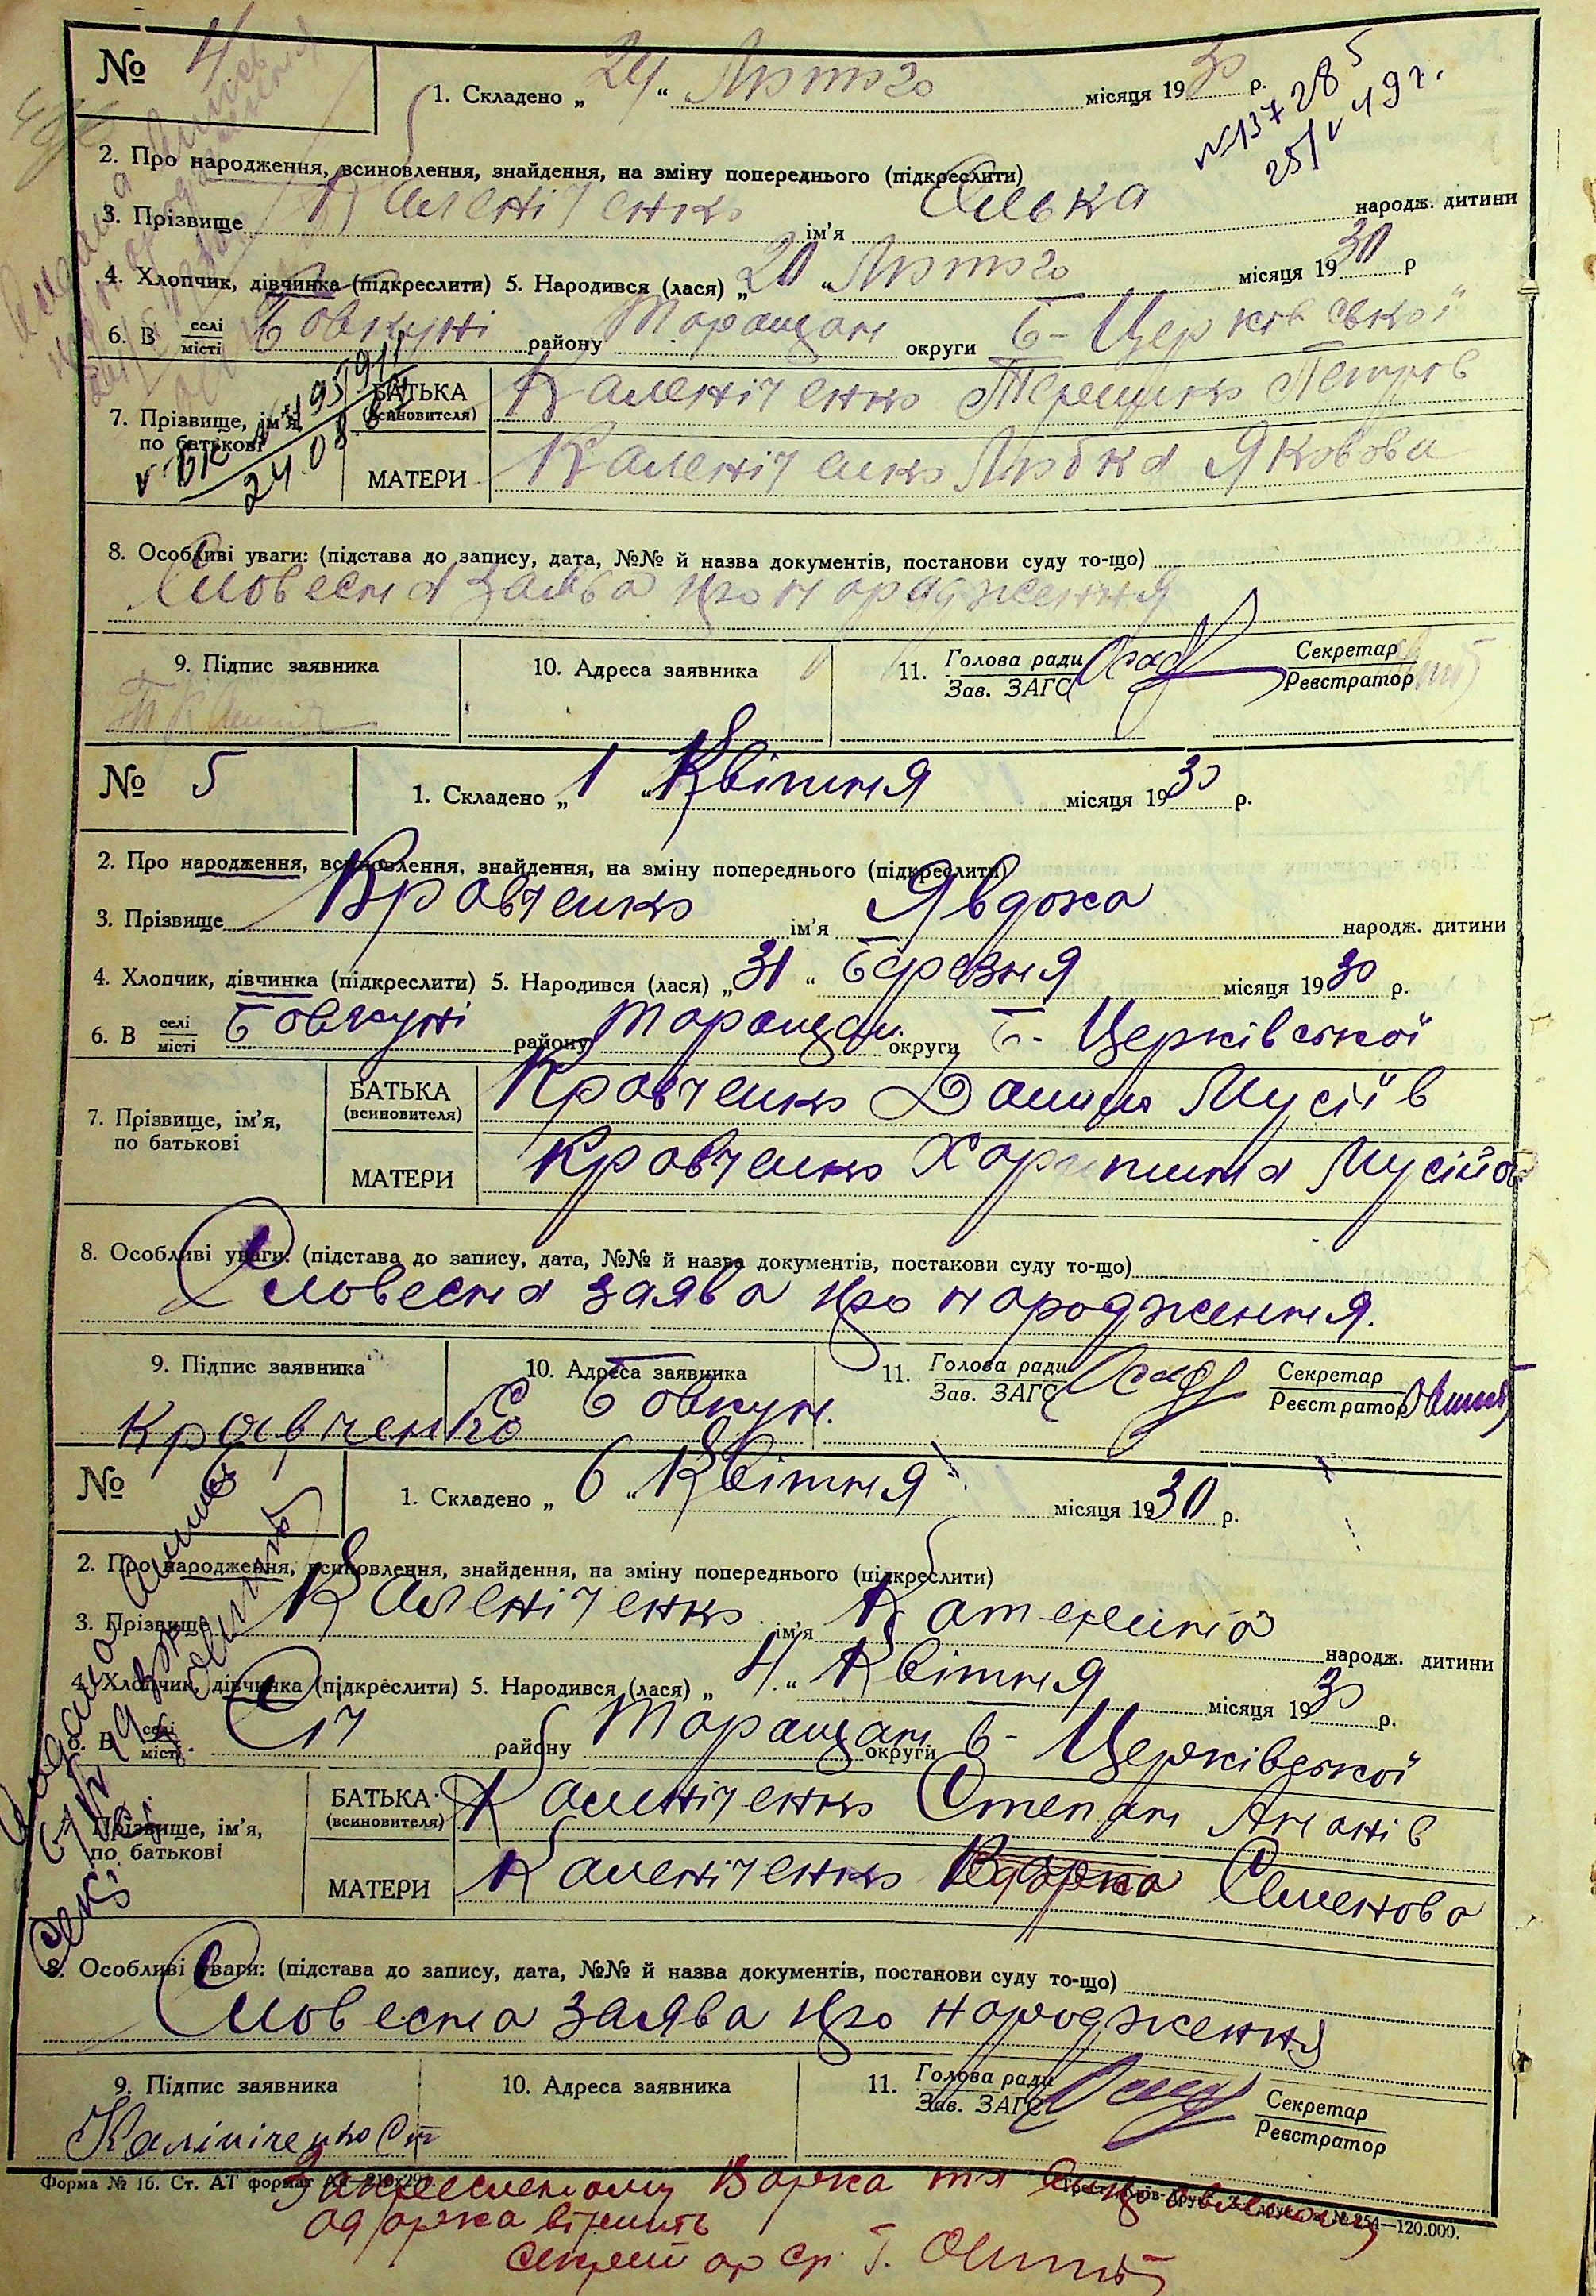 № 4
1. Складено „ 24 “ Лютого місяця 1930 р.
25/V 49 г.
2. Про народження, всиновлення, знайдення, на зміну попереднього (підкреслити)
3. Прізвище Каленіченко ім'я Олька народж. дитини
4. Хлопчик, дівчинка (підкреслити) 5. Народився (лася) „ 20 “ Лютого місяця 1930 р
6. В селі/місті Бовкуні району Таращан округи Б-Церківської
7. Прізвище, ім'я, по батькові
БАТЬКА (всиновителя) Каленіченко Терешко Петрів
МАТЕРИ Каленіченко Любка Яковова
8. Особливі уваги: (підстава до запису, дата, №№ й назва документів, постанови суду то-що)
Словесна заява про народження
9. Підпис заявника 10. Адреса заявника 11. Голова ради/Зав. ЗАГС Секретар/Реєстратор
№ 5
1. Складено „ 1 “ Квітня місяця 1930 р.
2. Про народження, всиновлення, знайдення, на зміну попереднього (підкреслити)
3. Прізвище Кравченко ім'я Явдоха народж. дитини
4. Хлопчик, дівчинка (підкреслити) 5. Народився (лася) „ 31 “ Березня місяця 1930 р.
6. В селі/місті Бовкуні району Таращан. округи Б- Церківської
7. Прізвище, ім'я, по батькові
БАТЬКА (всиновителя) Кравченко Данило Мусіїв
МАТЕРИ Кравченко Харитина Мусійов
8. Особливі уваги: (підстава до запису, дата, №№ й назва документів, постанови суду то-що)
Словесна заява про народження.
9. Підпис заявника 10. Адреса заявника 11. Голова ради/Зав. ЗАГС Секретар/Реєстратор
Кравченко С Бовкун.
№ 6
1. Складено „ 6 “ Квітня місяця 1930 р.
2. Про народження, всиновлення, знайдення, на зміну попереднього (підкреслити)
3. Прізвище Каленіченко ім'я Катерина народж. дитини
4. Хлопчик, дівчинка (підкреслити) 5. Народився (лася) „ 4 “ Квітня місяця 1930 р.
6. В селі/місті району Таращан округи Б- Церківської
7. Прізвище, ім'я, по батькові
БАТЬКА (всиновителя) Каленіченко Степан Ананів
МАТЕРИ Каленіченко Одарка Семенова
8. Особливі уваги: (підстава до запису, дата, №№ й назва документів, постанови суду то-що)
Словесна заява про народження
9. Підпис заявника 10. Адреса заявника 11. Голова ради/Зав. ЗАГС Секретар/Реєстратор
Калініченко Ст
Форма № 16. Ст. АТ формат
254—120.000.
Закресленому Варка та
одарка вірить
секретар ср. Т.